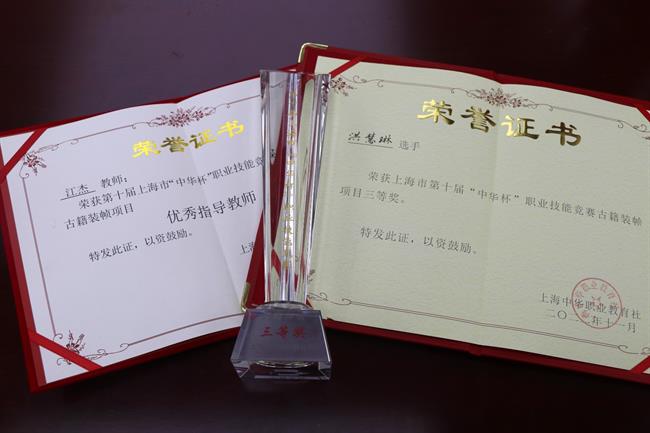 荣誉证书
江杰 教师:
荣获第十届上海市“中华杯”职业技能竞
古籍装帧项目 优秀指导教师
特发此证,以资鼓励。
上海
三等奖
荣誉证书
洪慧琳 选手
荣获上海市第十届“中华杯”职业技能竞赛古籍装帧
项目三等奖。
特发此证,以资鼓励。
上海中华职业教育社
年十一月